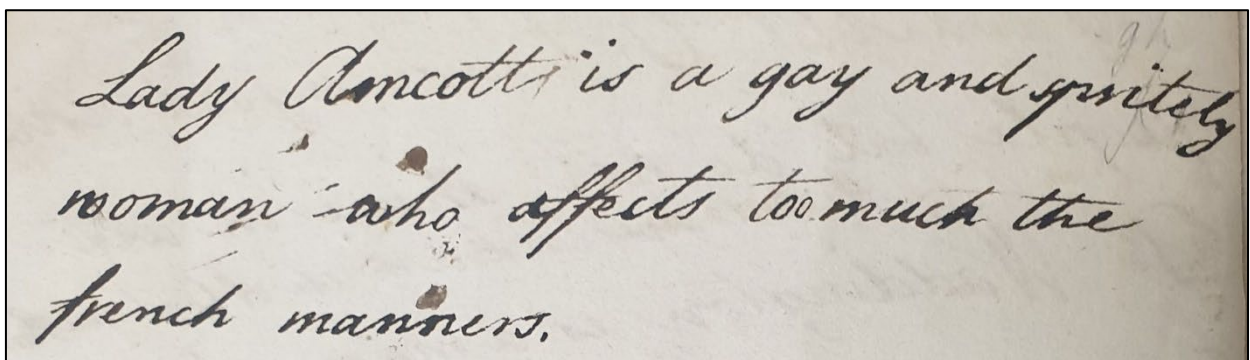 Lady Amcotts is a gay and spritely
woman who affects too much the
french manners.